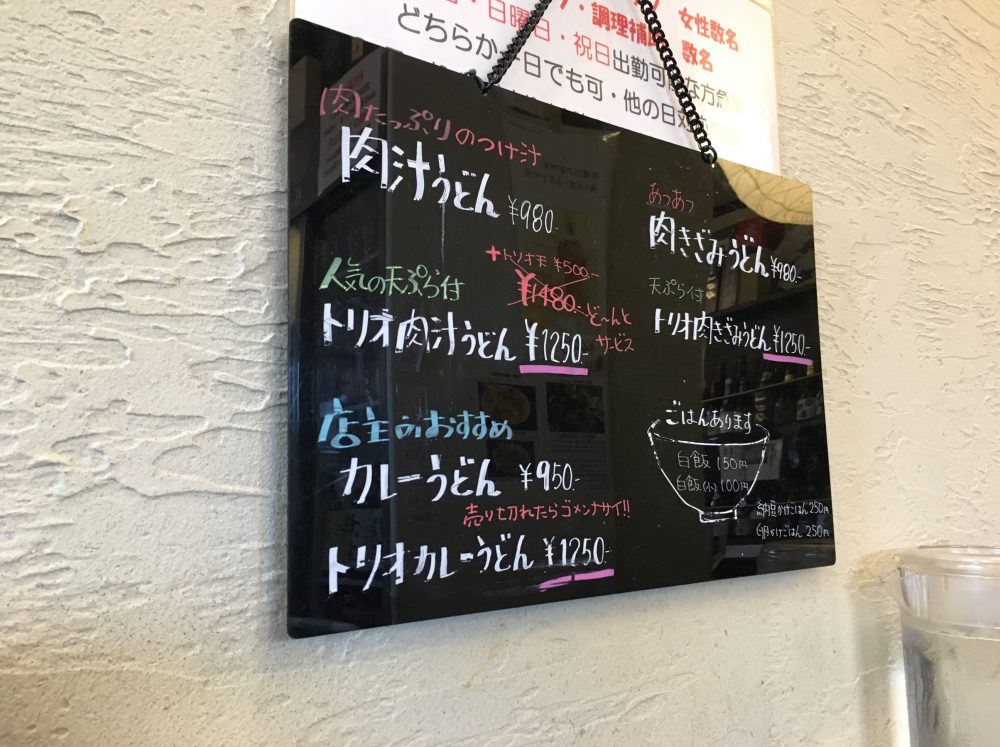 ・日曜日・祝日出勤可能な方急
・調理補助 数名
女性数名
どちらか一日でも可・他の日
肉たっぷりのつけ汁
肉汁うどん ¥980-
人気の天ぷら付
+トリオ天 ¥500-
¥1480- ど〜んと
サービス
トリオ肉汁うどん ¥1250-
店主のおすすめ
カレーうどん ¥950-
売り切れたらゴメンナサイ!!
トリオカレーうどん ¥1250-
あつあつ
肉きざみうどん ¥980-
天ぷら付
トリオ肉きざみうどん ¥1250-
ごはんあります
白飯 150円
白飯(小) 100円
納豆かけごはん 250円
卵かけごはん 250円